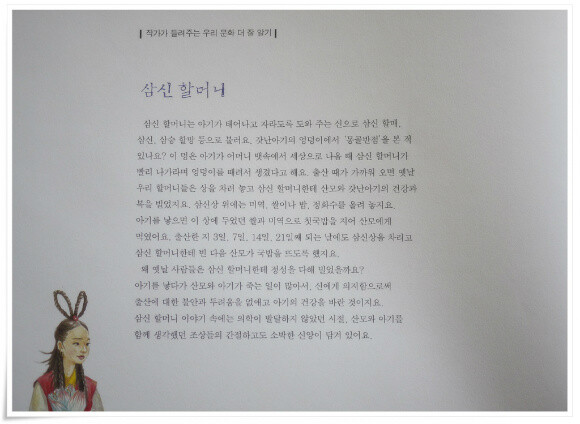 작가가 들려주는 우리 문화 더 잘 알기
삼신 할머니
삼신 할머니는 아기가 태어나고 자라도록 도와 주는 신으로 삼신 할매,
삼신, 삼승 할망 등으로 불러요. 갓난아기의 엉덩이에서 '몽골반점'을 본 적
있나요? 이 멍은 아기가 어머니 뱃속에서 세상으로 나올 때 삼신 할머니가
빨리 나가라며 엉덩이를 때려서 생겼다고 해요. 출산 때가 가까워 오면 옛날
우리 할머니들은 상을 차려 놓고 삼신 할머니한테 산모와 갓난아기의 건강과
복을 빌었지요. 삼신상 위에는 미역, 쌀이나 밥, 정화수를 올려 놓지요.
아기를 낳으면 이 상에 두었던 쌀과 미역으로 첫국밥을 지어 산모에게
먹였어요. 출산한 지 3일, 7일, 14일, 21일째 되는 날에도 삼신상을 차리고
삼신 할머니한테 빈 다음 산모가 국밥을 뜨도록 했지요.
왜 옛날 사람들은 삼신 할머니한테 정성을 다해 빌었을까요?
아기를 낳다가 산모와 아기가 죽는 일이 많아서, 신에게 의지함으로써
출산에 대한 불안과 두려움을 없애고 아기의 건강을 바란 것이지요.
삼신 할머니 이야기 속에는 의학이 발달하지 않았던 시절, 산모와 아기를
함께 생각했던 조상들의 간절하고도 소박한 신앙이 담겨 있어요.